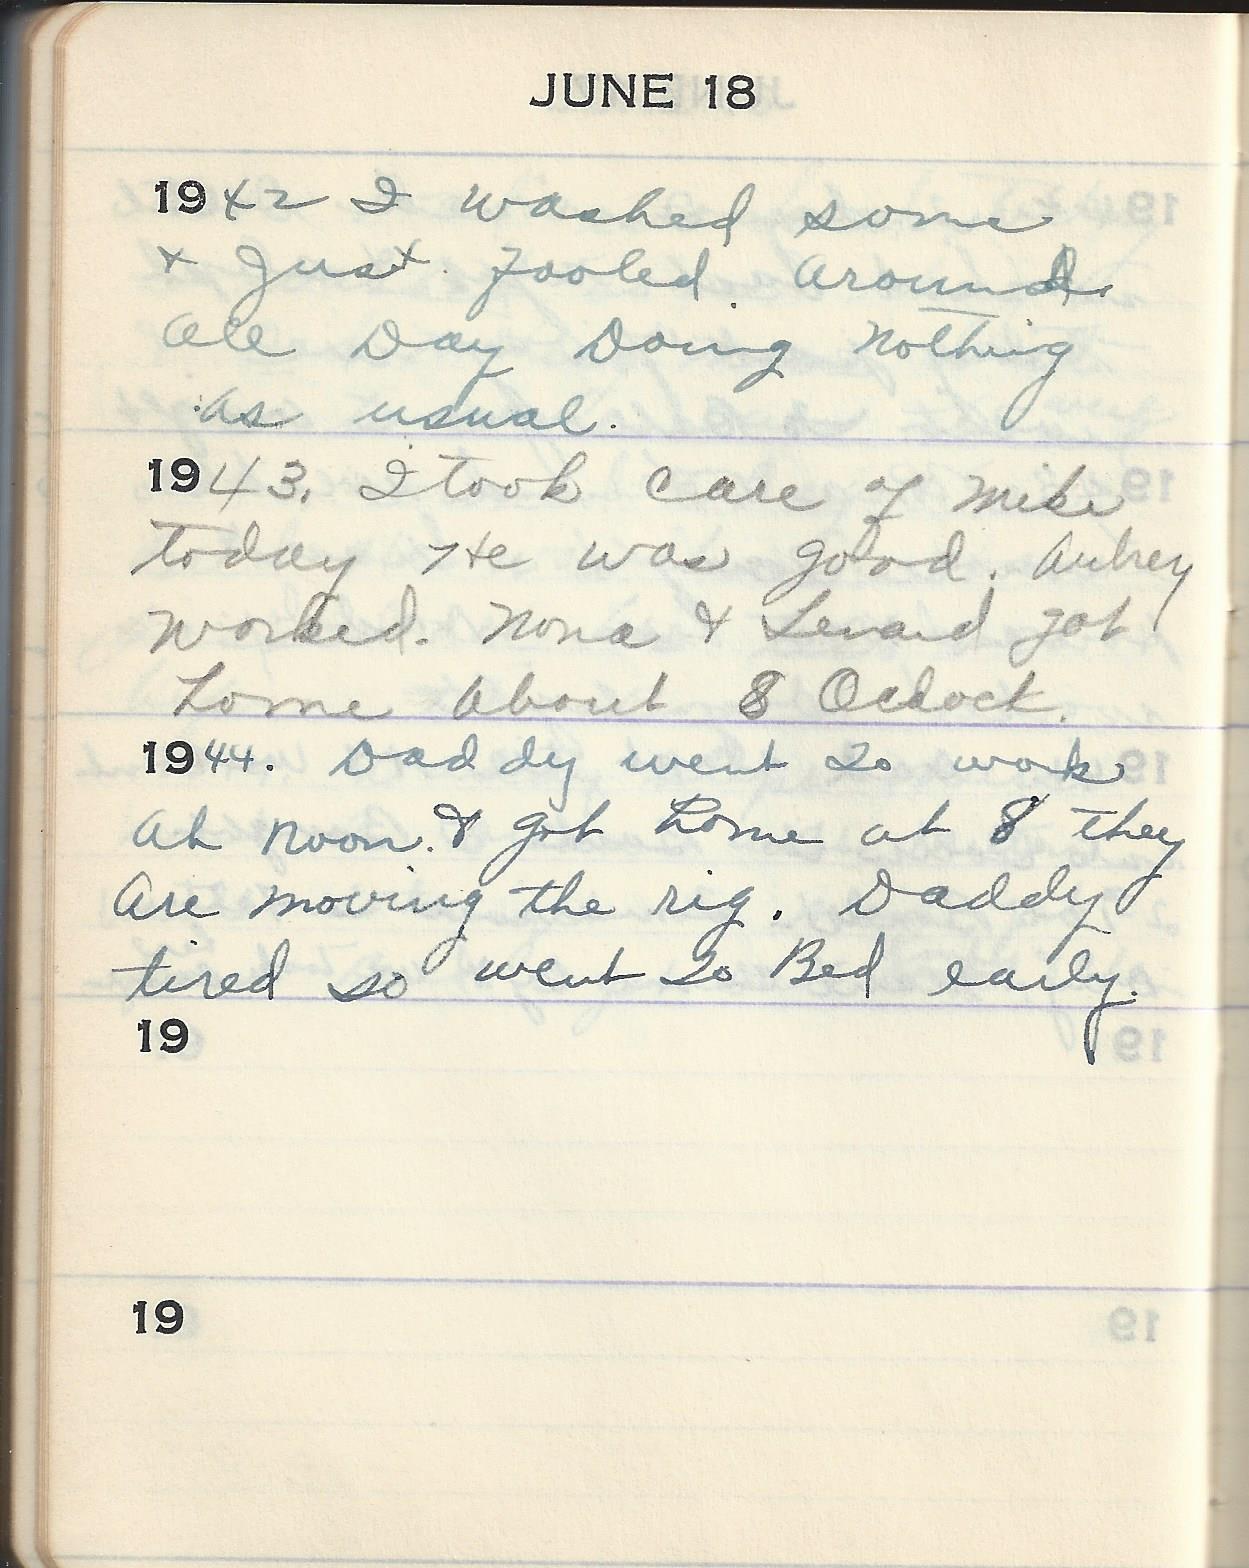 JUNE 18
1942 I washed some
& Just fooled around.
all Day Doing nothing
as usual.
1943. I took care of Mike
today He was good. Aubrey
worked. Nona & Lenard got
home about 8 Oclock.
1944. Daddy went to work
at noon. & got home at 8 they
are moving the rig. Daddy
tired so went to Bed early.
19
19